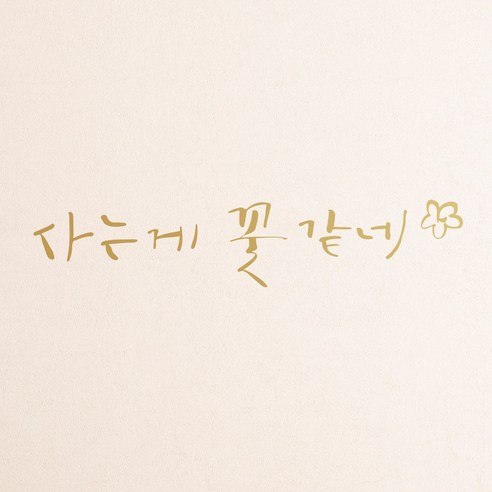 사는게 꽃 같네